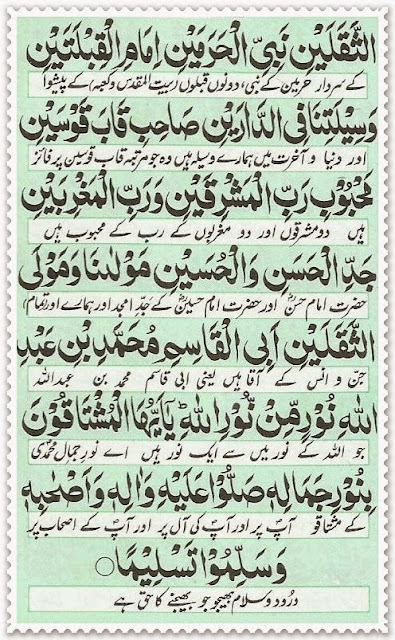 الثَّقَلَيْنِ نَبِيِّ الْحَرَمَيْنِ اِمَامِ الْقِبْلَتَيْنِ
کے سردار حرمین کے نبی، دونوں قبلوں (بیت المقدس و کعبہ) کے پیشوا
وَسِيْلَتِنَا فِي الدَّارَيْنِ صَاحِبِ قَابَ قَوْسَيْنِ
اور دنیا و آخرت میں ہمارے وسیلہ ہیں وہ جو مرتبہ قاب قوسین پر فائز
مَحْبُوْبِ رَبِّ الْمَشْرِقَيْنِ وَرَبِّ الْمَغْرِبَيْنِ
ہیں دو مشرقوں اور دو مغربوں کے رب کے محبوب ہیں
جَدِّ الْحَسَنِ وَالْحُسَيْنِ مَوْلٰىنَا وَمَوْلَى
حضرت امام حسنؓ اور حضرت امام حسینؓ کے جدِّ امجد اور ہمارے اور (تمام)
الثَّقَلَيْنِ اَبِي الْقَاسِمِ مُحَمَّدِ بْنِ عَبْدِ
جن و انس کے آقا ہیں یعنی ابی قاسم محمد بن عبداللہ
اللّٰهِ نُوْرٍ مِّنْ نُّوْرِ اللّٰهِ ؕ يٰٓاَيُّهَا الْمُشْتَاقُوْنَ
جو اللہ کے نور میں سے ایک نور ہیں اے نورِ جمالِ محمدی
بِنُوْرِ جَمَالِهٖ صَلُّوْا عَلَيْهِ وَاٰلِهٖ وَاَصْحَابِهٖ
کے مشتاقو آپؐ پر اور آپؐ کی آل پر اور آپؐ کے اصحاب پر
وَسَلِّمُوْا تَسْلِيْمًا ○
درود و سلام بھیجو جو بھیجنے کا حق ہے